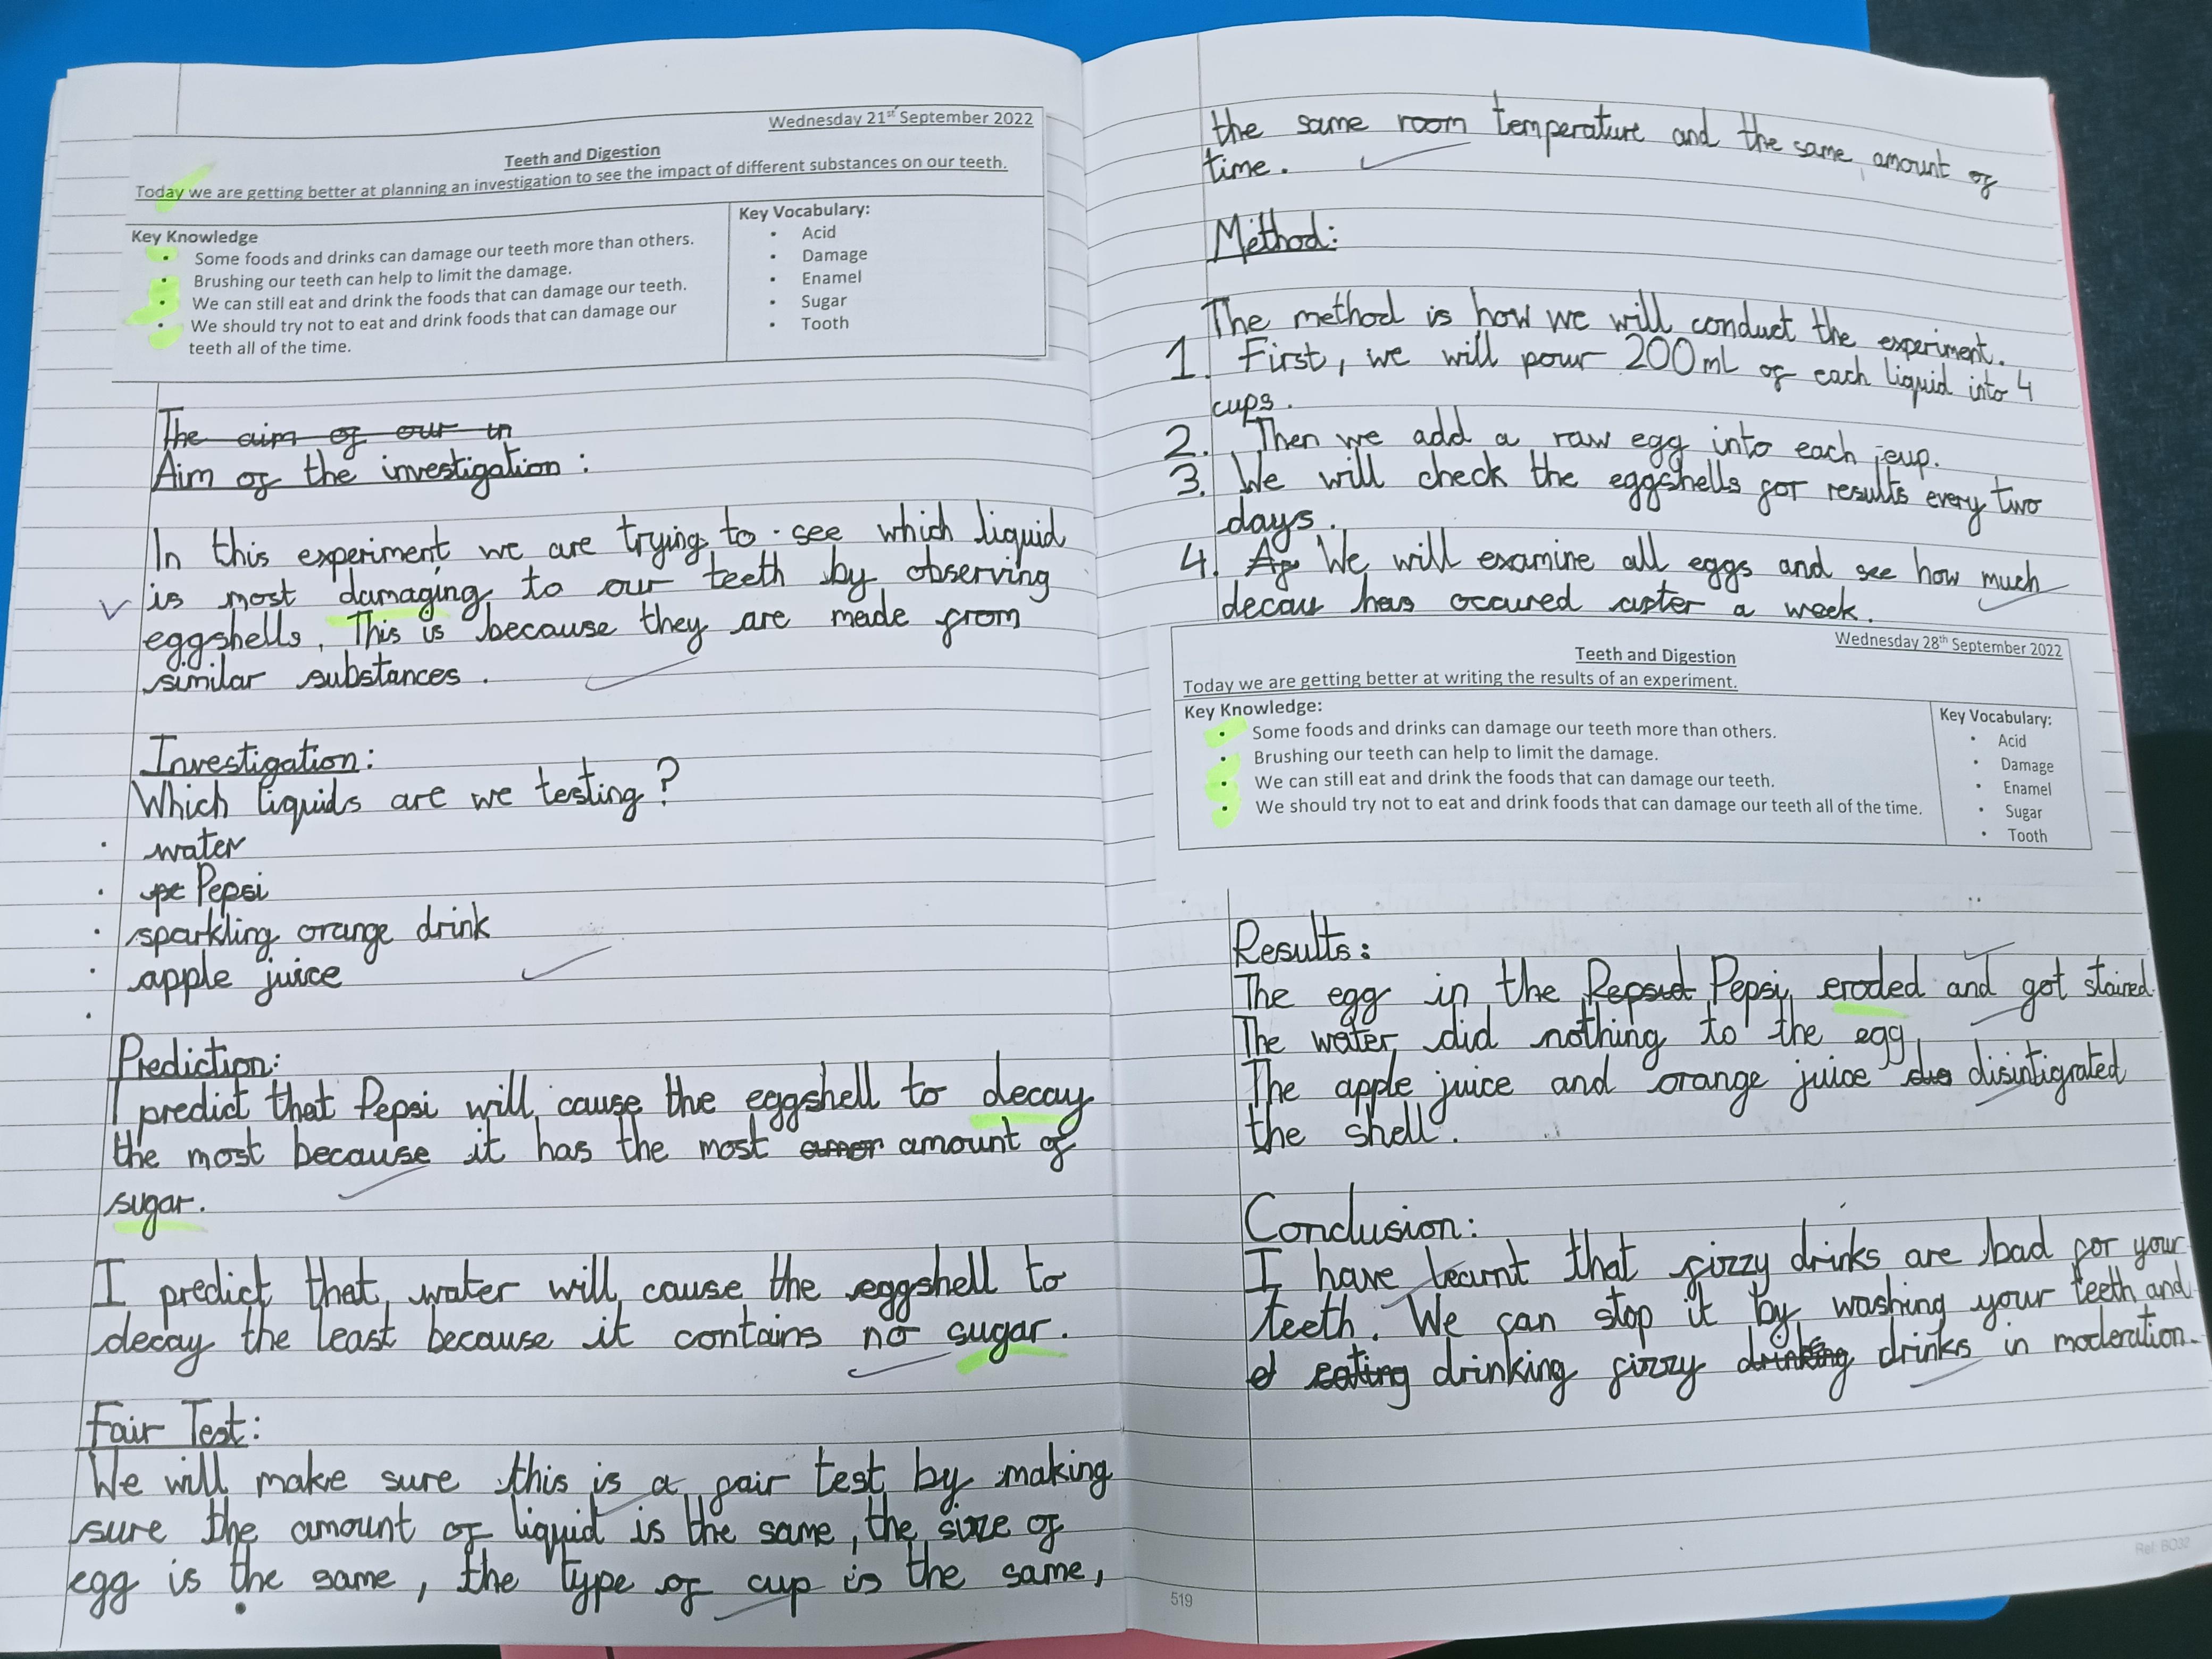 Wednesday 21st September 2022
Teeth and Digestion
Today we are getting better at planning an investigation to see the impact of different substances on our teeth.
Key Knowledge
• Some foods and drinks can damage our teeth more than others.
• Brushing our teeth can help to limit the damage.
• We can still eat and drink the foods that can damage our teeth.
• We should try not to eat and drink foods that can damage our
teeth all of the time.
Key Vocabulary:
• Acid
• Damage
• Enamel
• Sugar
• Tooth
The aim of our in
Aim of the investigation:
In this experiment we are trying to see which liquid
is most damaging to our teeth by observing
eggshells. This is because they are made from
similar substances.
Investigation:
Which liquids are we testing?
• water
• pe Pepsi
• sparkling orange drink
• apple juice
•
Prediction:
I predict that Pepsi will cause the eggshell to decay
the most because it has the most amount of
sugar.
I predict that water will cause the eggshell to
decay the least because it contains no sugar.
Fair Test:
We will make sure this is a fair test by making
sure the amount of liquid is the same, the size of
egg is the same, the type of cup is the same,
the same room temperature and the same amount of
time.
Method:
The method is how we will conduct the experiment.
1. First, we will pour 200mL of each liquid into 4
cups.
2. Then we add a raw egg into each cup.
3. We will check the eggshells for results every two
days.
4. Af We will examine all eggs and see how much
decay has occured after a week.
Wednesday 28th September 2022
Teeth and Digestion
Today we are getting better at writing the results of an experiment.
Key Knowledge:
• Some foods and drinks can damage our teeth more than others.
• Brushing our teeth can help to limit the damage.
• We can still eat and drink the foods that can damage our teeth.
• We should try not to eat and drink foods that can damage our teeth all of the time.
Key Vocabulary:
• Acid
• Damage
• Enamel
• Sugar
• Tooth
Results:
The egg in the Pepsi eroded and got stained.
The water did nothing to the egg
The apple juice and orange juice disintigrated
the shell.
Conclusion:
I have learnt that fizzy drinks are bad for your
teeth. We can stop it by washing your teeth and
eating drinking fizzy drinking drinks in moderation.
519
Ref: BO32